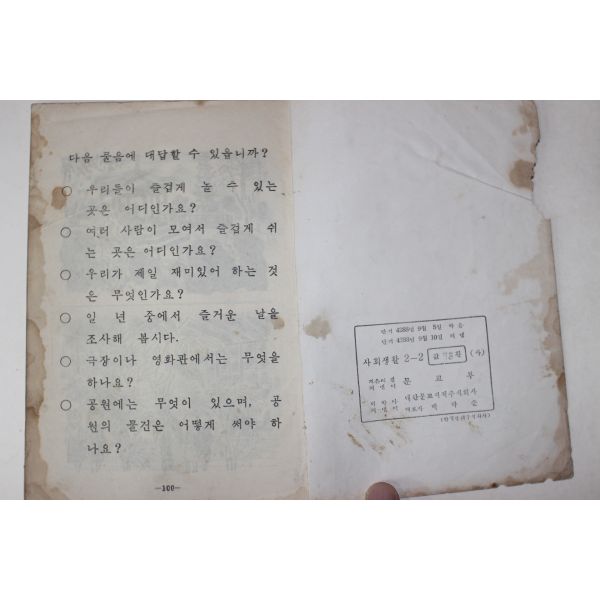 다음 물음에 대답할 수 있읍니까?
○ 우리들이 즐겁게 놀 수 있는
곳은 어디인가요?
○ 여러 사람이 모여서 즐겁게 쉬
는 곳은 어디인가요?
○ 우리가 제일 재미있어 하는 것
은 무엇인가요?
○ 일 년 중에서 즐거운 날을
조사해 봅시다.
○ 극장이나 영화관에서는 무엇을
하나요?
○ 공원에는 무엇이 있으며, 공
원의 물건은 어떻게 써야 하
나요?
—100—
단기 4288년 9월 5일 박음
단기 4288년 9월 10일 펴냄
사회생활 2-2
문 교 부
대한문교서적주식회사